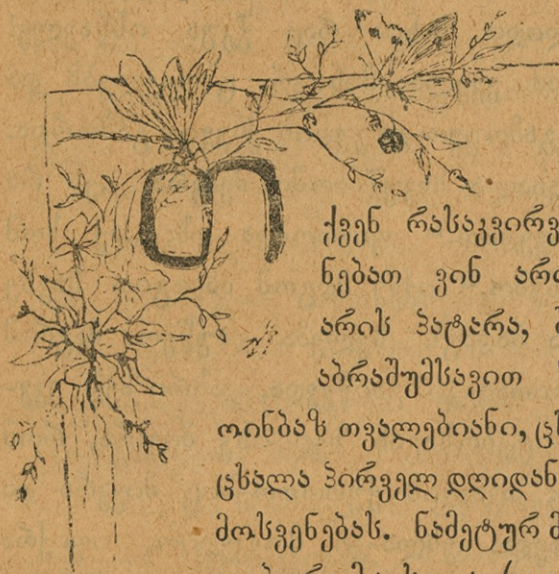 თქვენ რასაკვირვ
ნებათ ვინ არი
არის პატარა,
აბრაშუმსავით
ოინბაზ თვალებიანი, ცხ
ცხალა პირველ დღიდან
მოსვენებას. ნამეტურ მ